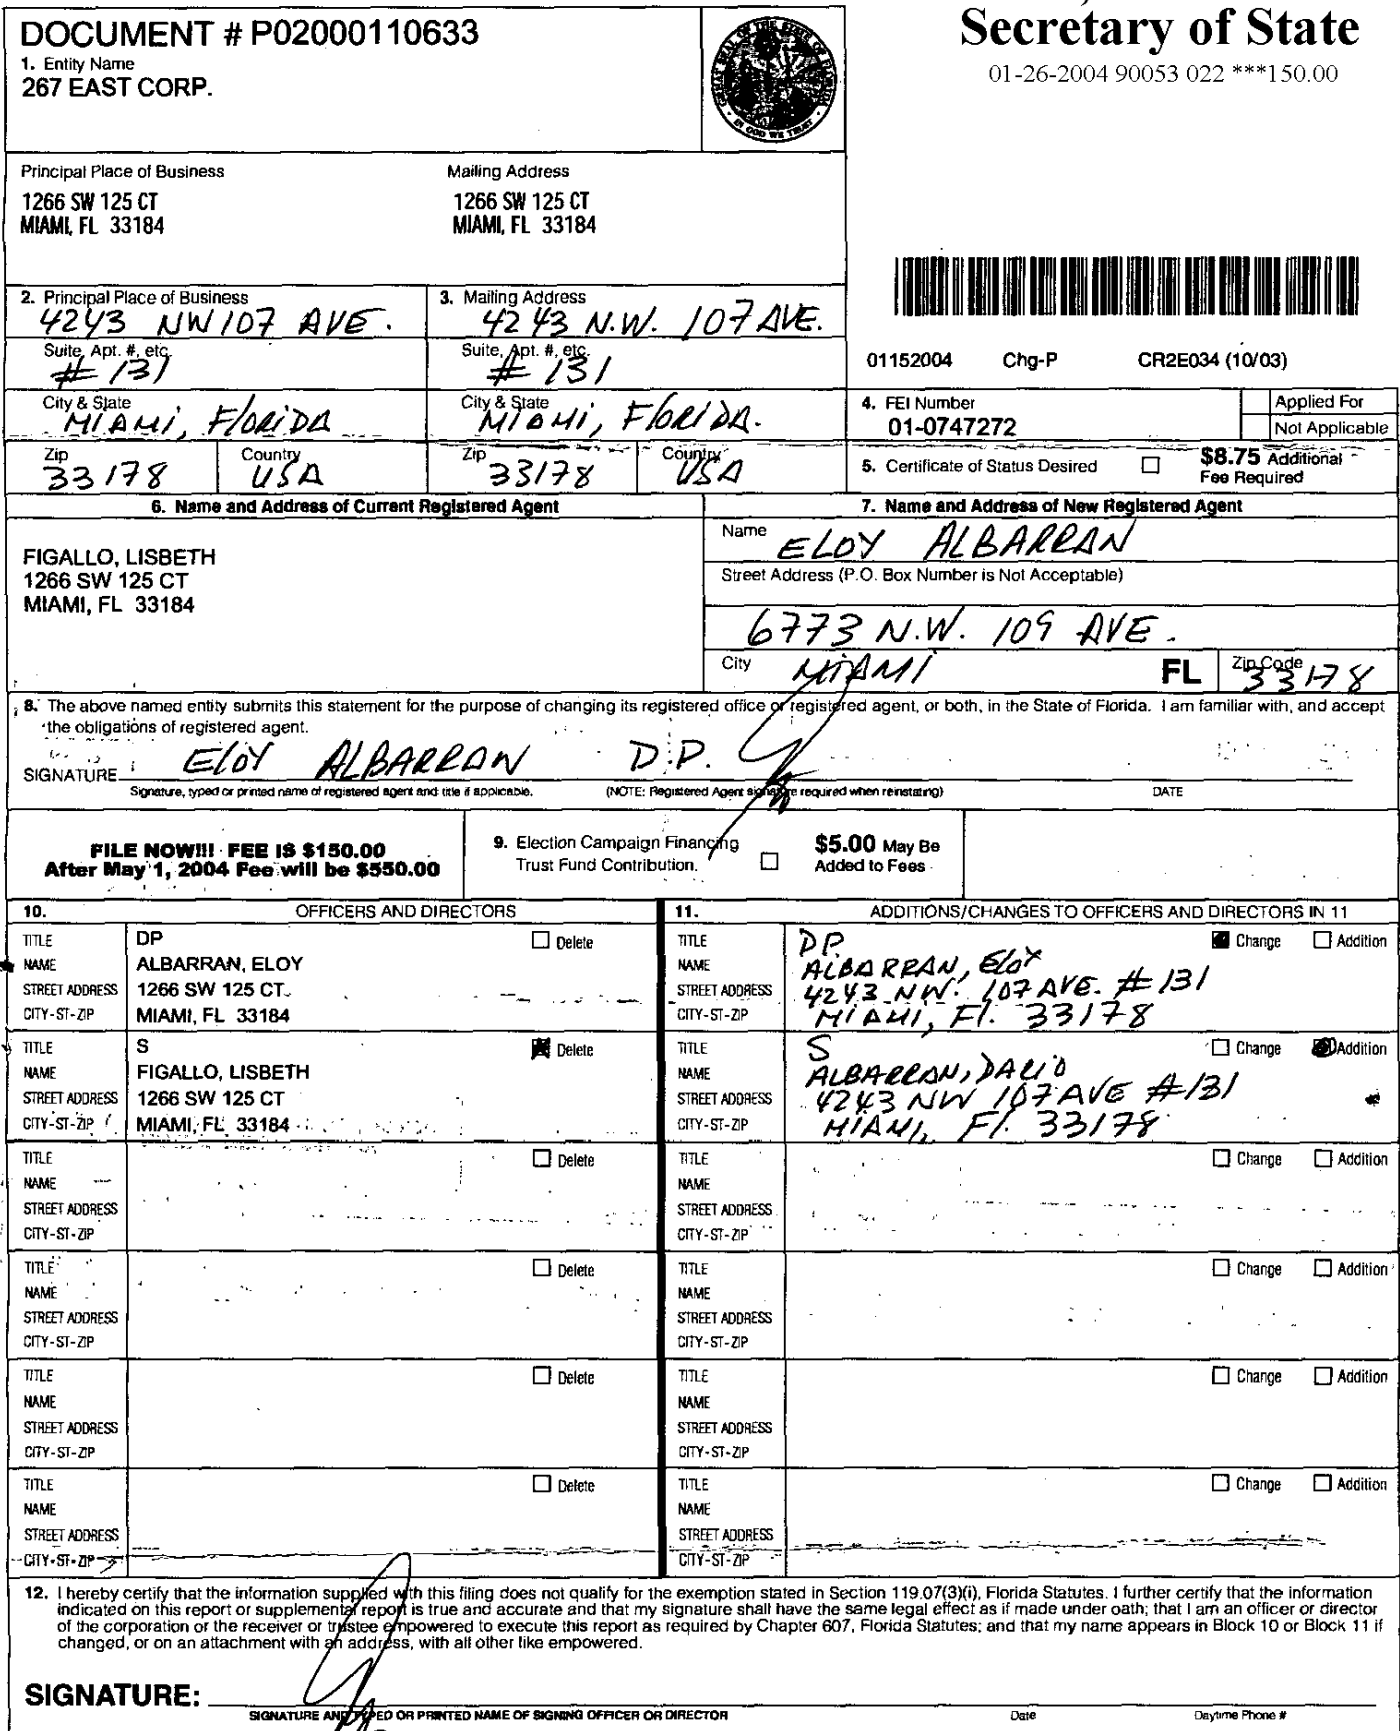 DOCUMENT # P02000110633
1. Entity Name
267 EAST CORP.
GREAT SEAL OF THE STATE OF FLORIDA
IN GOD WE TRUST
Secretary of State
01-26-2004 90053 022 ***150.00
Principal Place of Business
1266 SW 125 CT
MIAMI, FL 33184
Mailing Address
1266 SW 125 CT
MIAMI, FL 33184
2. Principal Place of Business
4243 NW 107 AVE.
Suite, Apt. #, etc.
# 131
City & State
MIAMI, FLORIDA
Zip
33178
Country
USA
3. Mailing Address
4243 N.W. 107 AVE.
Suite, Apt. #, etc.
# 131
City & State
MIAMI, FLORIDA.
Zip
33178
Country
USA
01152004 Chg-P CR2E034 (10/03)
4. FEI Number
01-0747272
Applied For
Not Applicable
5. Certificate of Status Desired
$8.75 Additional
Fee Required
6. Name and Address of Current Registered Agent
FIGALLO, LISBETH
1266 SW 125 CT
MIAMI, FL 33184
7. Name and Address of New Registered Agent
Name ELOY ALBARRAN
Street Address (P.O. Box Number is Not Acceptable)
6773 N.W. 109 AVE.
City MIAMI FL Zip Code 33178
8. The above named entity submits this statement for the purpose of changing its registered office or registered agent, or both, in the State of Florida. I am familiar with, and accept
the obligations of registered agent.
SIGNATURE ELOY ALBARRAN D.P.
Signature, typed or printed name of registered agent and title if applicable. (NOTE: Registered Agent signature required when reinstating) DATE
FILE NOW!!! FEE IS $150.00
After May 1, 2004 Fee will be $550.00
9. Election Campaign Financing
Trust Fund Contribution.
$5.00 May Be
Added to Fees
10. OFFICERS AND DIRECTORS
TITLE DP Delete
NAME ALBARRAN, ELOY
STREET ADDRESS 1266 SW 125 CT
CITY-ST-ZIP MIAMI, FL 33184
TITLE S Delete
NAME FIGALLO, LISBETH
STREET ADDRESS 1266 SW 125 CT
CITY-ST-ZIP MIAMI, FL 33184
TITLE Delete
NAME
STREET ADDRESS
CITY-ST-ZIP
TITLE Delete
NAME
STREET ADDRESS
CITY-ST-ZIP
TITLE Delete
NAME
STREET ADDRESS
CITY-ST-ZIP
TITLE Delete
NAME
STREET ADDRESS
CITY-ST-ZIP
11. ADDITIONS/CHANGES TO OFFICERS AND DIRECTORS IN 11
TITLE DP. Change Addition
NAME ALBARRAN, ELOY
STREET ADDRESS 4243 NW. 107 AVE. # 131
CITY-ST-ZIP MIAMI, Fl. 33178
TITLE S Change Addition
NAME ALBARRAN, DARIO
STREET ADDRESS 4243 NW 107 AVE #131
CITY-ST-ZIP MIAMI, Fl. 33178
TITLE Change Addition
NAME
STREET ADDRESS
CITY-ST-ZIP
TITLE Change Addition
NAME
STREET ADDRESS
CITY-ST-ZIP
TITLE Change Addition
NAME
STREET ADDRESS
CITY-ST-ZIP
TITLE Change Addition
NAME
STREET ADDRESS
CITY-ST-ZIP
12. I hereby certify that the information supplied with this filing does not qualify for the exemption stated in Section 119.07(3)(i), Florida Statutes. I further certify that the information
indicated on this report or supplemental report is true and accurate and that my signature shall have the same legal effect as if made under oath; that I am an officer or director
of the corporation or the receiver or trustee empowered to execute this report as required by Chapter 607, Florida Statutes; and that my name appears in Block 10 or Block 11 if
changed, or on an attachment with an address, with all other like empowered.
SIGNATURE:
SIGNATURE AND TYPED OR PRINTED NAME OF SIGNING OFFICER OR DIRECTOR Date Daytime Phone #